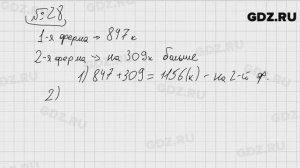 GDZ.RU
№28
1-я ферма → 847 к
2-я ферма → на 309к больше
1) 847 + 309 = 1156 (к) - на 2-й ф.
2)